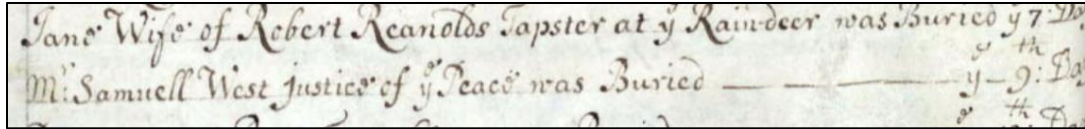 Jane Wife of Robert Reanolds Tapster at yᵉ Rain-deer was Buried yᵉ 7: Da
Mʳ: Samuell West Justice of yᵉ Peace was Buried — — — yᵉ 9:ᵗʰ Da